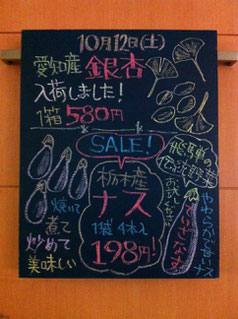 10月12日(土)
愛知産 銀杏
入荷しました！
1箱 580円
SALE!
栃木産
ナス
1袋 4本入
198円!
焼いて
煮て
炒めて
美味しい
飛騨の
伝統野菜
やわらかで甘いナス